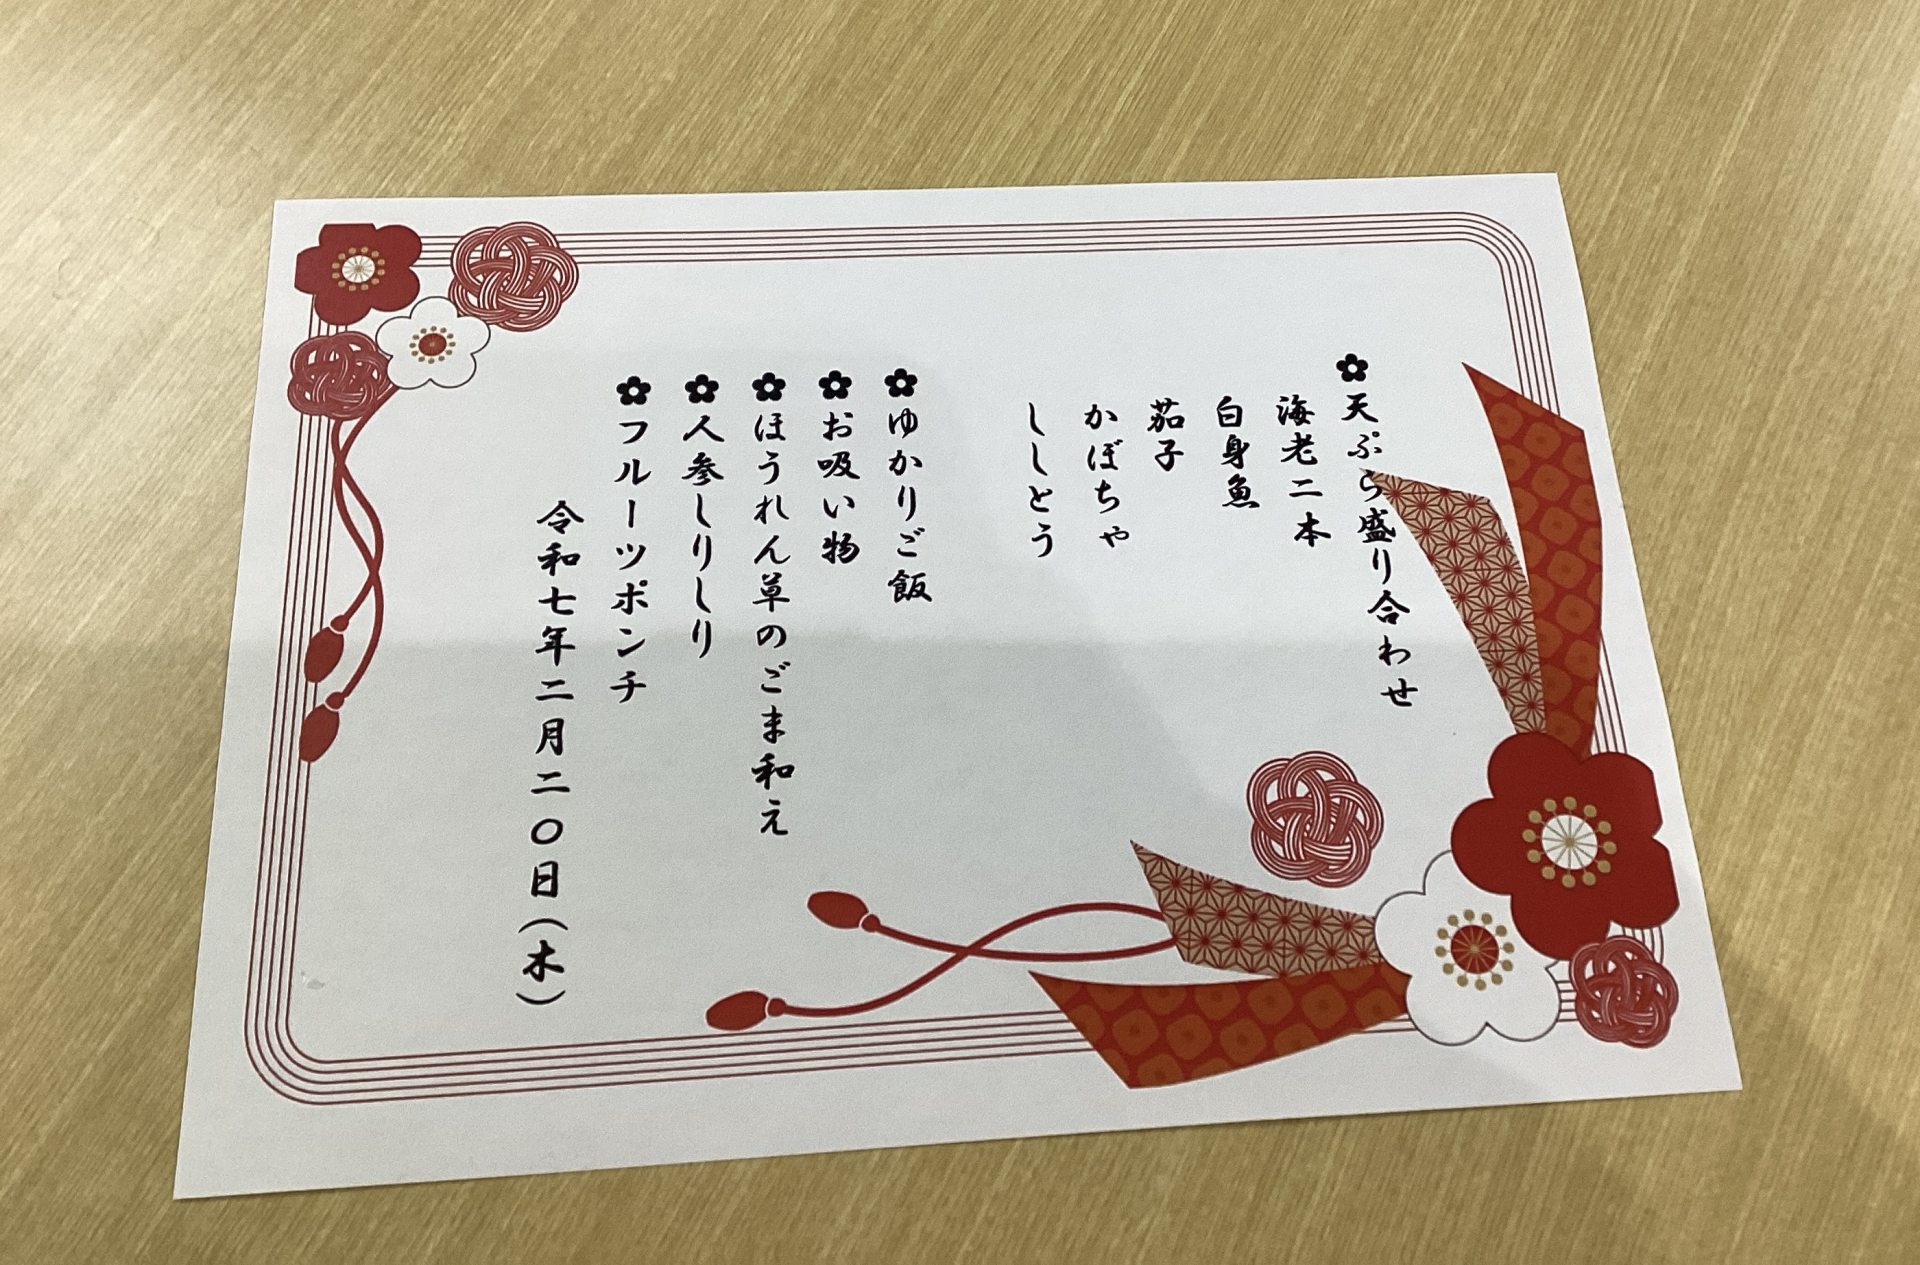 ✿天ぷら盛り合わせ
海老二本
白身魚
茄子
かぼちゃ
ししとう
✿ゆかりご飯
✿お吸い物
✿ほうれん草のごま和え
✿人参しりしり
✿フルーツポンチ
令和七年二月二〇日(木)